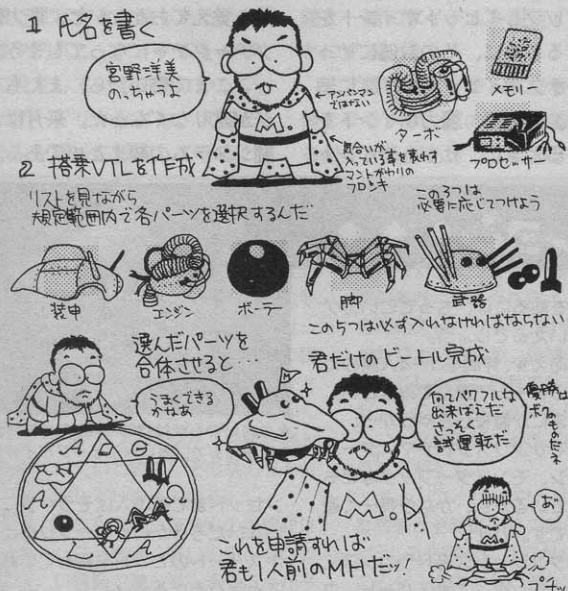 1 氏名を書く
宮野洋美
のっちゃうよ
M
←アンパンマン
ではない
気合いが
入っている事を表わす
マントがわりの
フロシキ
ターボ
メモリー
プロセッサー
この3つは
必要に応じつけよう
2 搭乗VTLを作成
リストを見ながら
規定範囲内で各パーツを選択するんだ
装甲
エンジン
ボーラー
脚
武器
この5つは必ず入れなければならない
選んだパーツを
合体させると・・・
うまくできる
かなあ
君だけのビートル完成
何てパワフルな
出来ばえだ
さっそく
試運転だ
優勝は
ボクの
ものだネ
A
G
A
Ω
L
A
M
これを申請すれば
君も1人前のMHだッ!
あ゛
M
プチッ